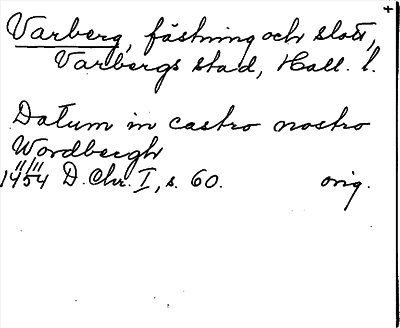 Varberg, fästning och slott,
Varbergs stad, Hall. l.
Datum in castro nostro
Wordbergh
14/11 1454 D. Chr. I, s. 60. orig.